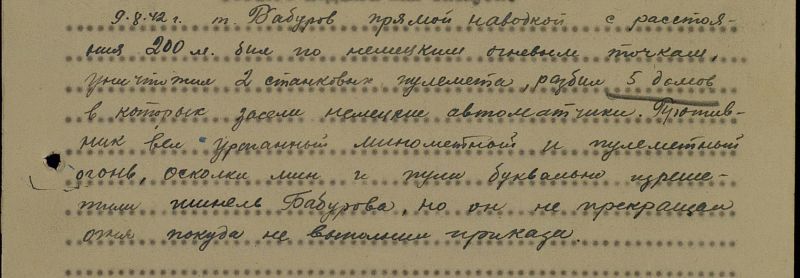 9.8.42 г. т. Бабуров прямой наводкой с расстоя-
ния 200 м. бил по немецким огневым точкам,
уничтожил 2 станковых пулемета, разбил 5 домов
в которых засели немецкие автоматчики. Против-
ник вел ураганный минометный и пулеметный
огонь, осколки мин и пули буквально изреше-
тили шинель Бабурова, но он не прекращал
огня покуда не выполнил приказа.